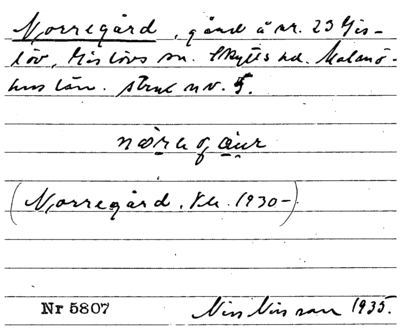 Norregård, gård å nr. 23 Gis-
löv, Gislövs sn. Skytts hd. Malmö-
hus län. Struc nv. 5.
(Norregård. Kb. 1930-)
Nr 5807 Nils Nilsson 1935.